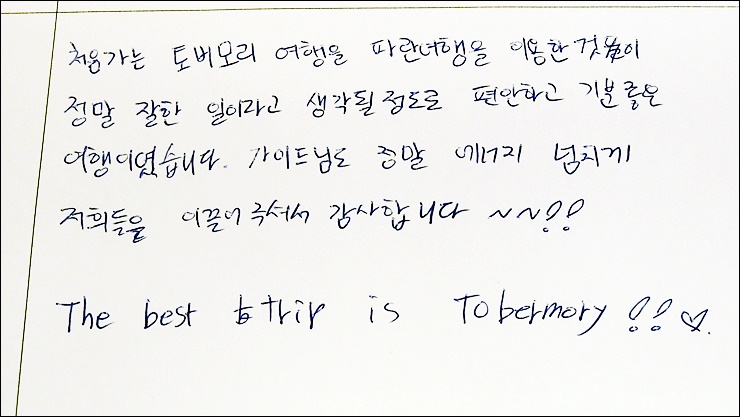 처음가는 토버모리 여행을 파란여행을 이용한것이
정말 잘한 일이라고 생각될정도로 편안하고 기분좋은
여행이였습니다. 가이드님도 정말 에너지 넘치게
저희들을 이끌어주셔서 감사합니다 ~~!!
The best trip is Tobermory !! ♡.